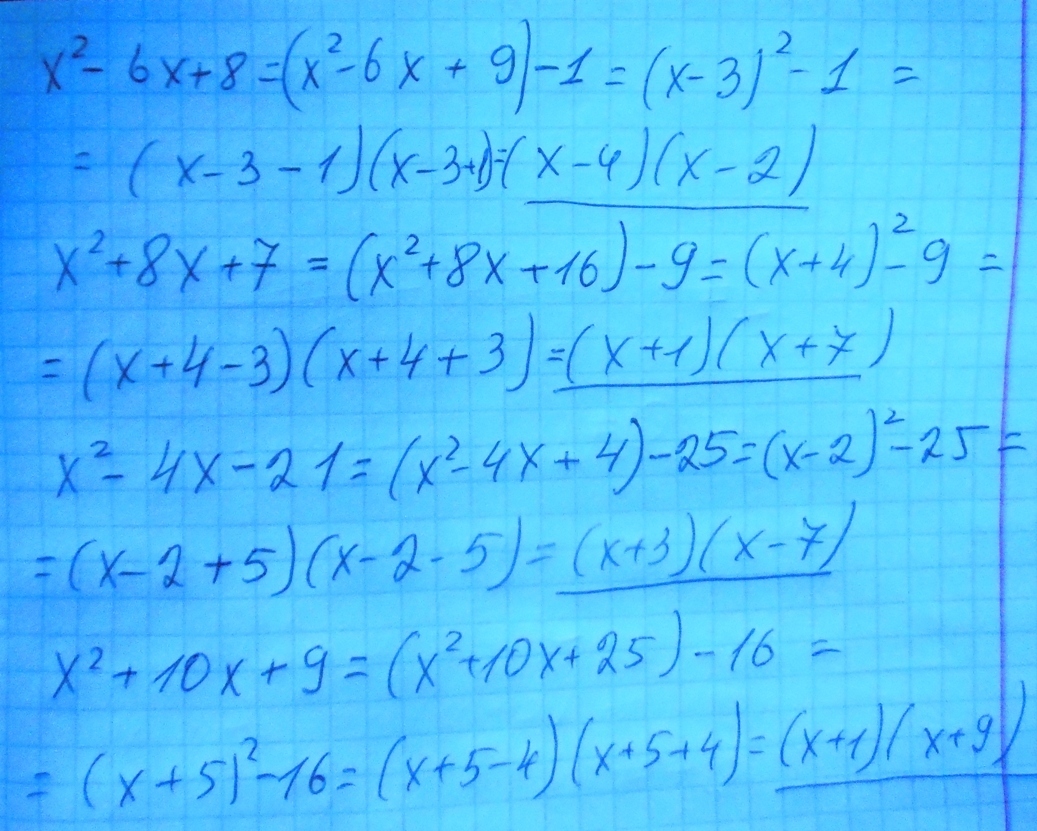 x²- 6x+8=(x²-6x + 9)-1=(x-3)²-1 =
= (x-3-1)(x-3+1)=(x-4)(x-2)
x²+8x+7 = (x²+8x+16)-9=(x+4)²-9 =
=(x+4-3)(x+4+3)=(x+1)(x+7)
x²- 4x-21=(x²-4x+4)-25=(x-2)²-25 =
=(x-2+5)(x-2-5)=(x+3)(x-7)
x²+10x+9=(x²+10x+25)-16 =
= (x+5)²-16=(x+5-4)(x+5+4)=(x+1)(x+9)